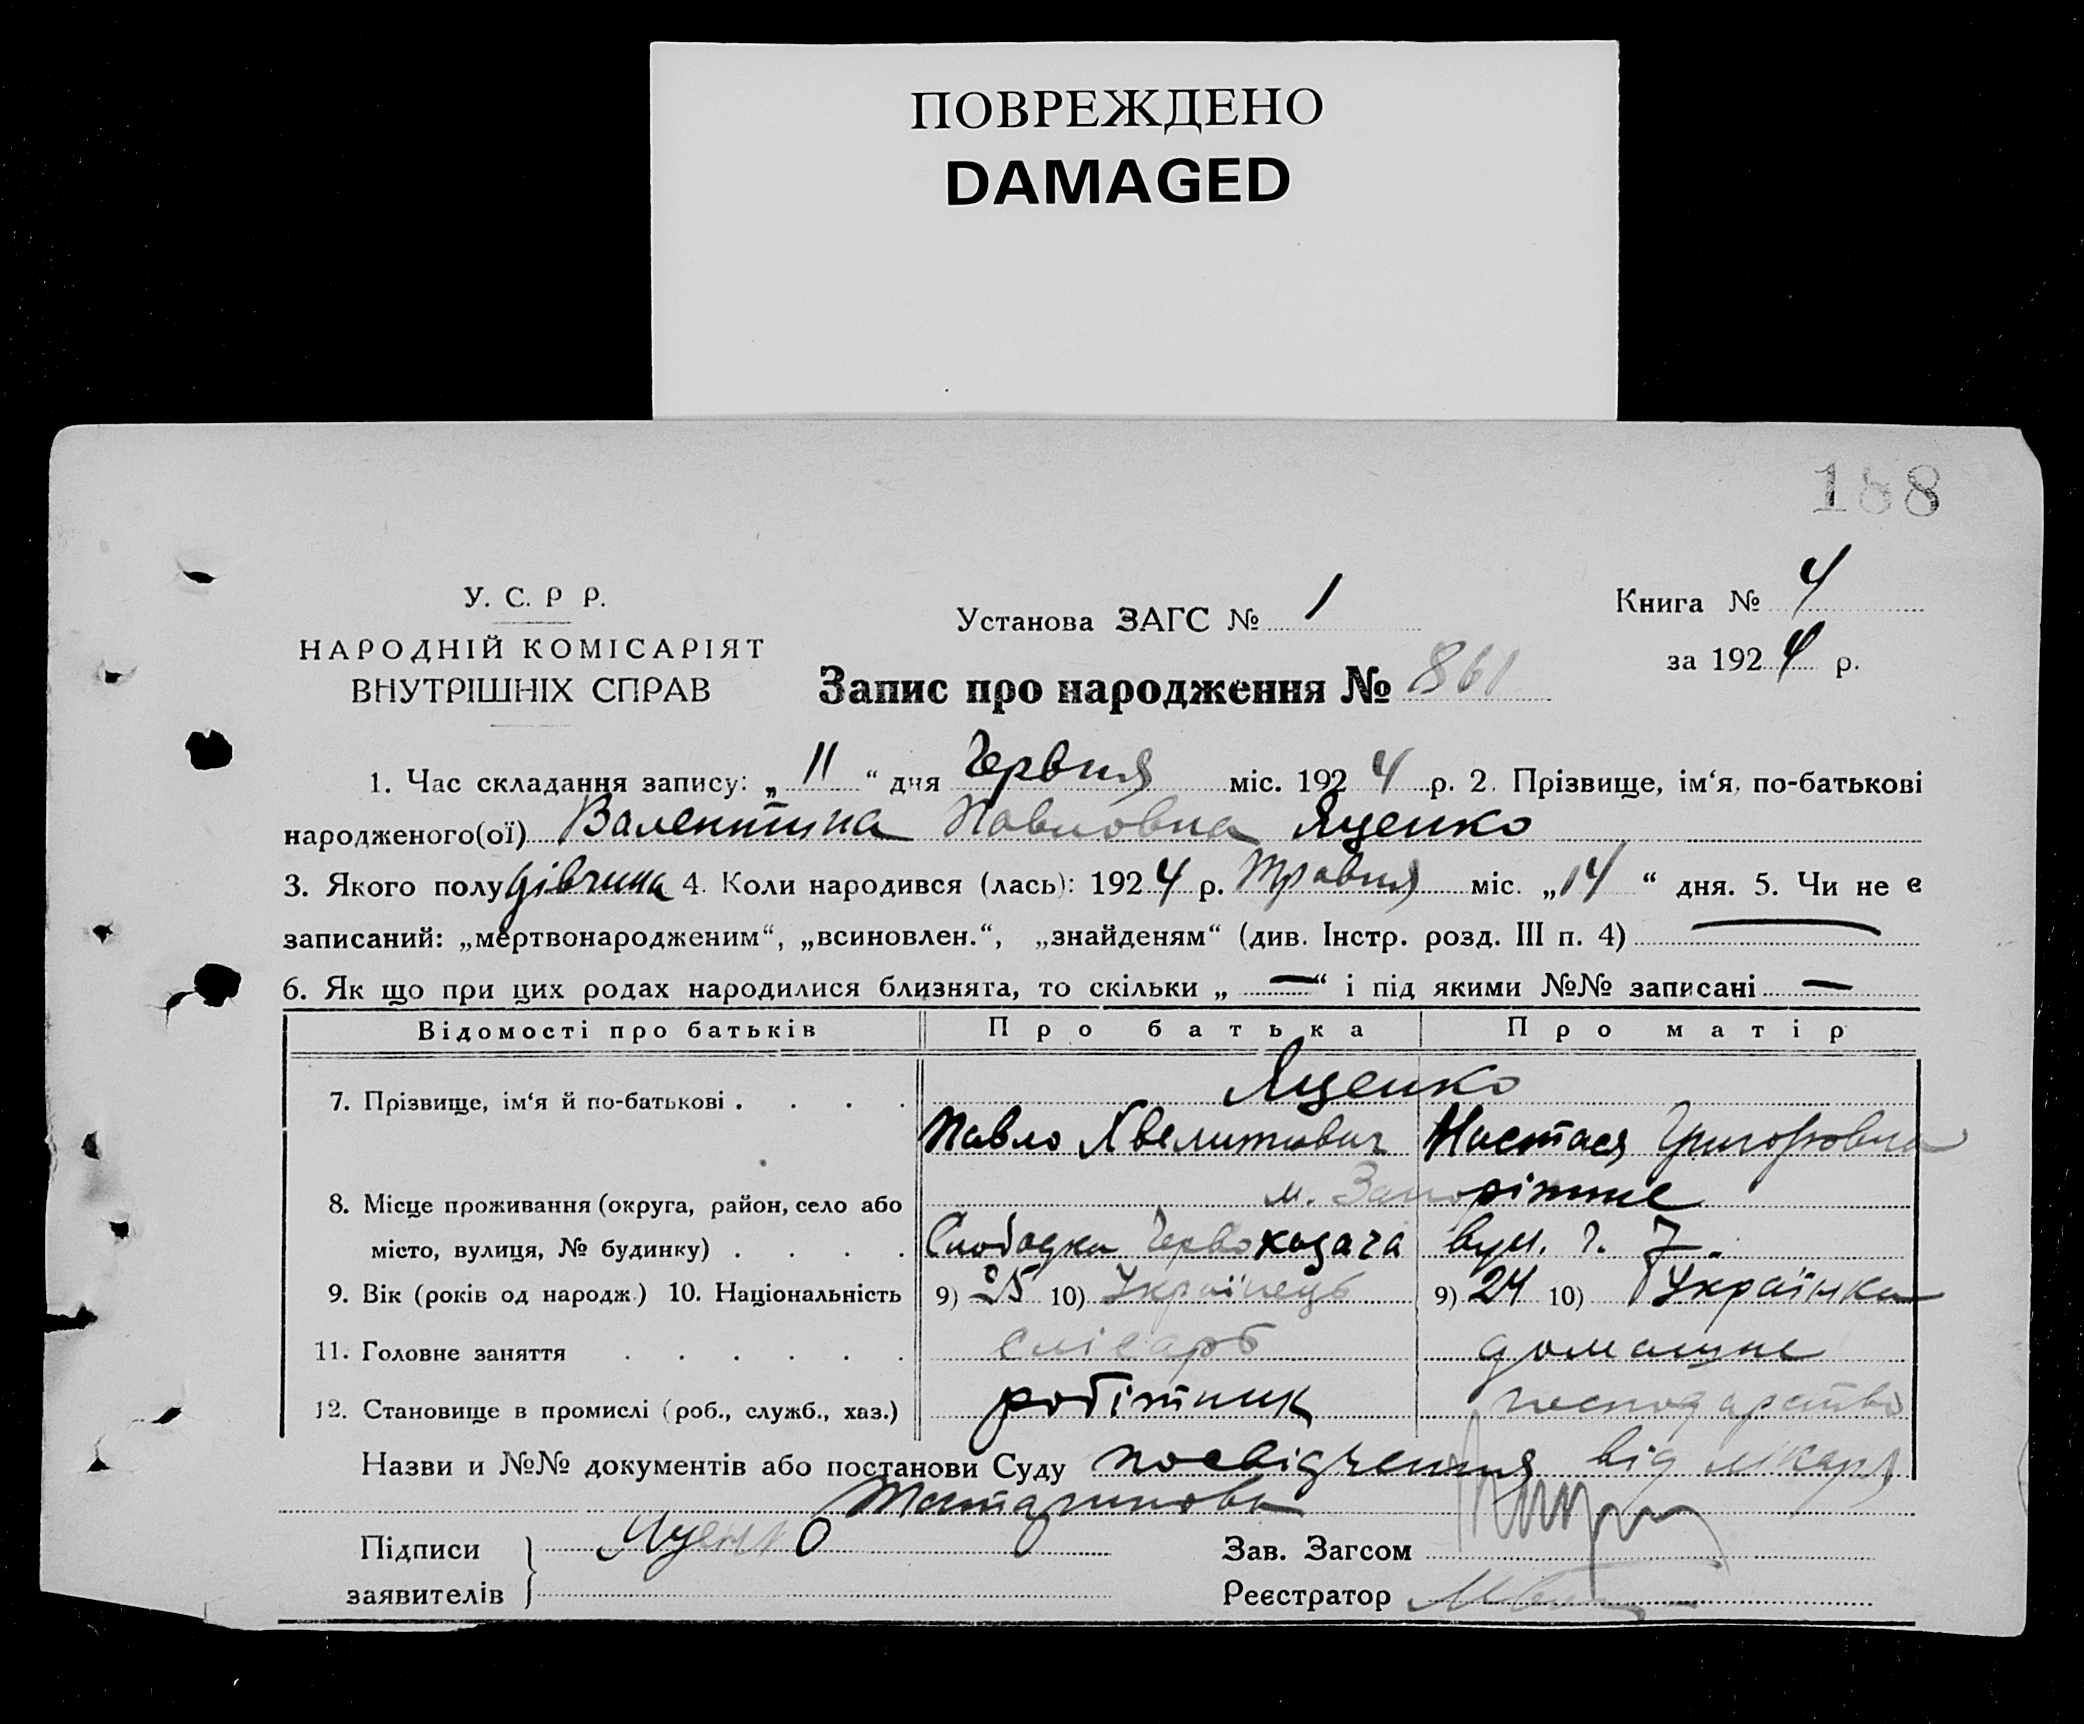 ПОВРЕЖДЕНО
DAMAGED
188
У. С. Р Р.
НАРОДНІЙ КОМІСАРІЯТ
ВНУТРІШНІХ СПРАВ
Установа ЗАГС № 1
Книга № 4
за 1924 р.
Запис про народження № 861
1. Час складання запису: „ 11 “ дня Червня міс. 1924 р. 2. Прізвище, ім‘я, по-батькові
народженого(ої) Валентина Павловна Яценко
3. Якого полу дівчина 4. Коли народився (лась): 1924 р. Травня міс. „14 “ дня. 5. Чи не є
записаний: „мертвонародженим“, „всиновлен.“, „знайденям“ (див. Інстр. розд. III п. 4) —
6. Як що при цих родах народилися близнята, то скільки „ — “ і під якими №№ записані —
Відомості про батьків Про батька Про матір
7. Прізвище, ім‘я й по-батькові . . . . Яценко
Павло Настася Григоровна
8. Місце проживання (округа, район, село або м. Запоріжже
місто, вулиця, № будинку) . . . . Слободка вул. г. 7.
9. Вік (років од народж.) 10. Національність 9) 25 10) Українець 9) 24 10) Українка
11. Головне заняття . . . . . . слісарь домашнє
12. Становище в промислі (роб., служб., хаз.) робітник господарство
Назви и №№ документів або постанови Суду посвідчення від лікаря
Підписи Яценко Зав. Загсом
заявителів Реєстратор